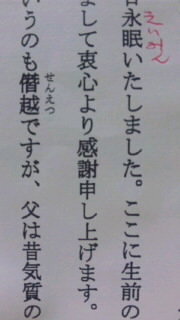 永眠いたしました。ここに生前の
えいみん
まして衷心より感謝申し上げます。
いうのも僭越ですが、父は昔気質の
せんえつ